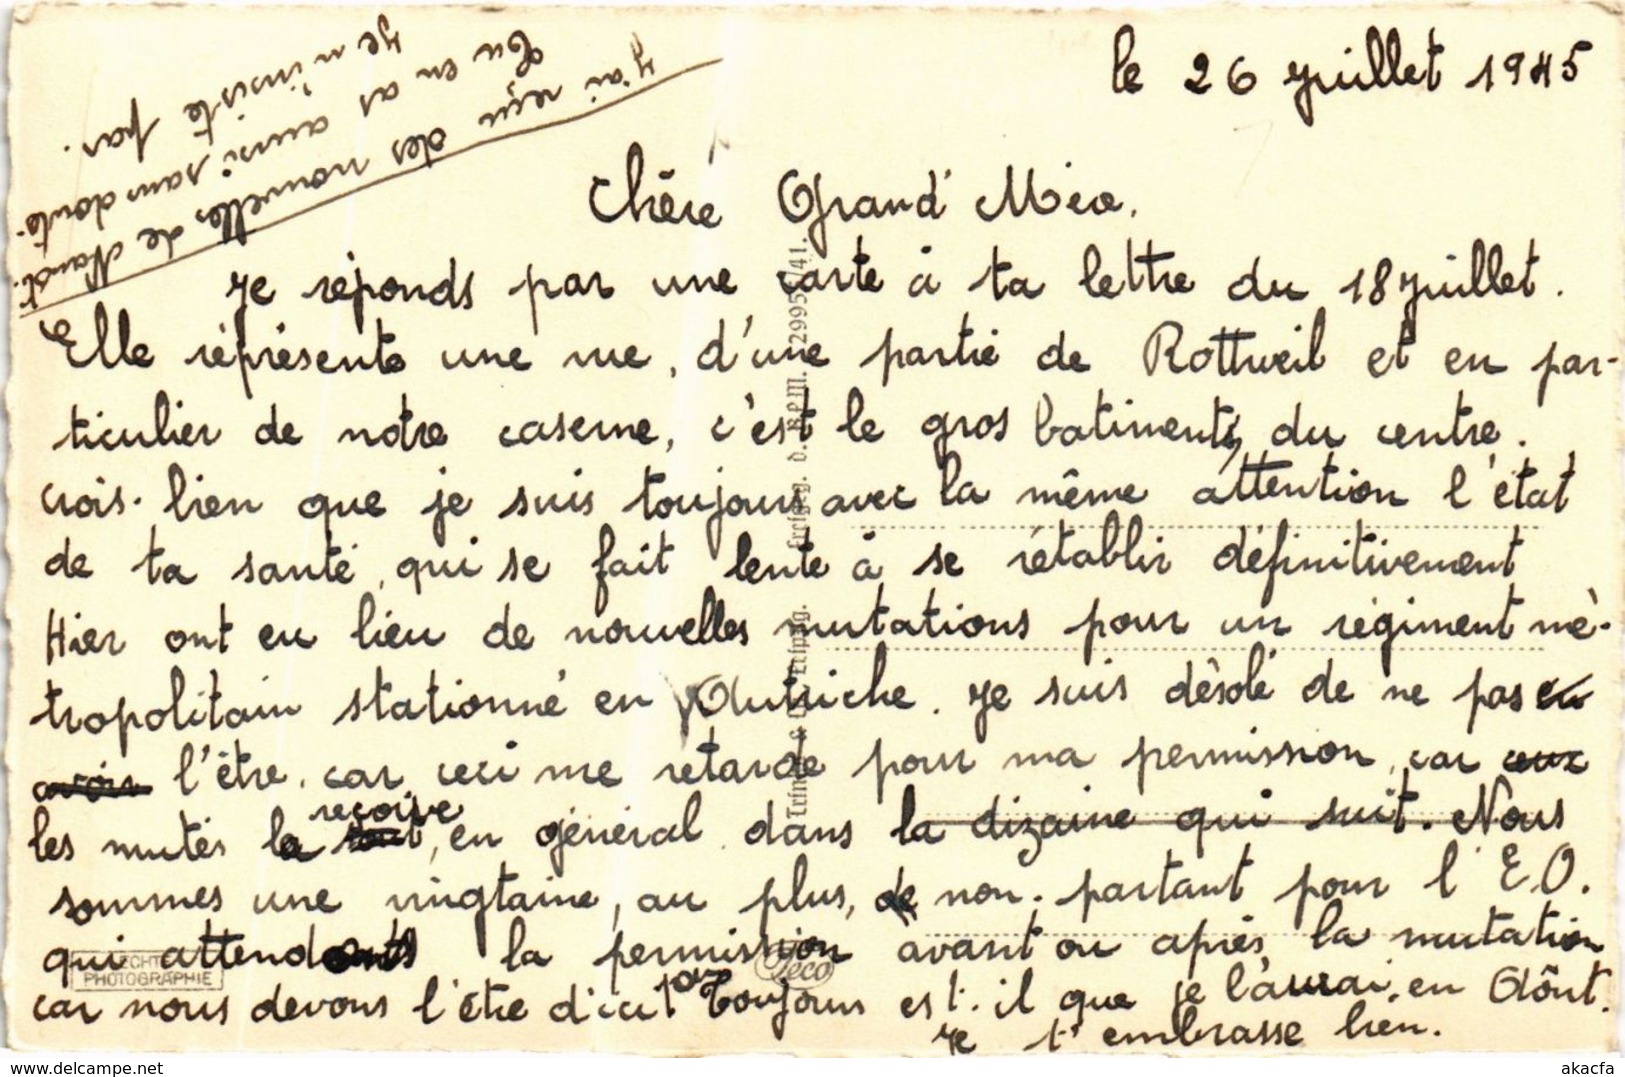 le 26 juillet 1945
Chère Grand' Mère.
Je réponds par une carte à ta lettre du 18 juillet.
Elle représente une vue, d'une partie de Rottweil et en par-
ticulier de notre caserne, c'est le gros batiment, du centre.
crois-bien que je suis toujours avec la même attention l'état
de ta santé, qui se fait lente à se rétablir définitivement
Hier ont eu lieu de nouvelles mutations pour un régiment mé-
tropolitain stationné en Autriche. Je suis désolé de ne pas en
avoir l'être. car ceci me retarde pour ma permission, car ceux
les mutés la reçoive, en général dans la dizaine qui suit. Nous
sommes une vingtaine, au plus, de non-partant pour l'E.O.
qui attendons la permission avant ou après, la mutation
car nous devons l'être d'ici Toujours est-il que je l'aurai, en Août.
Je t'embrasse bien.
J'ai reçu des nouvelles de
Tu en as aussi sans doute.
je n'insiste pas.
PHOTOGRAPHIE
Léco
akacfa
delcampe.net